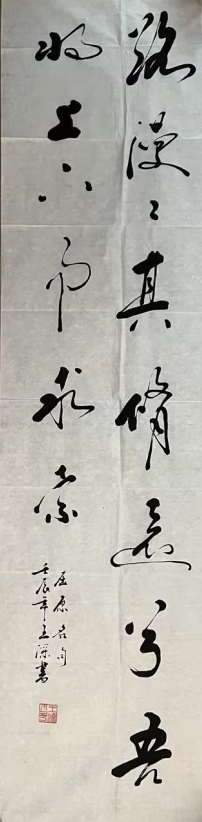 路漫〻其修远兮吾
将上下而求索
屈原名句
壬辰年王深书